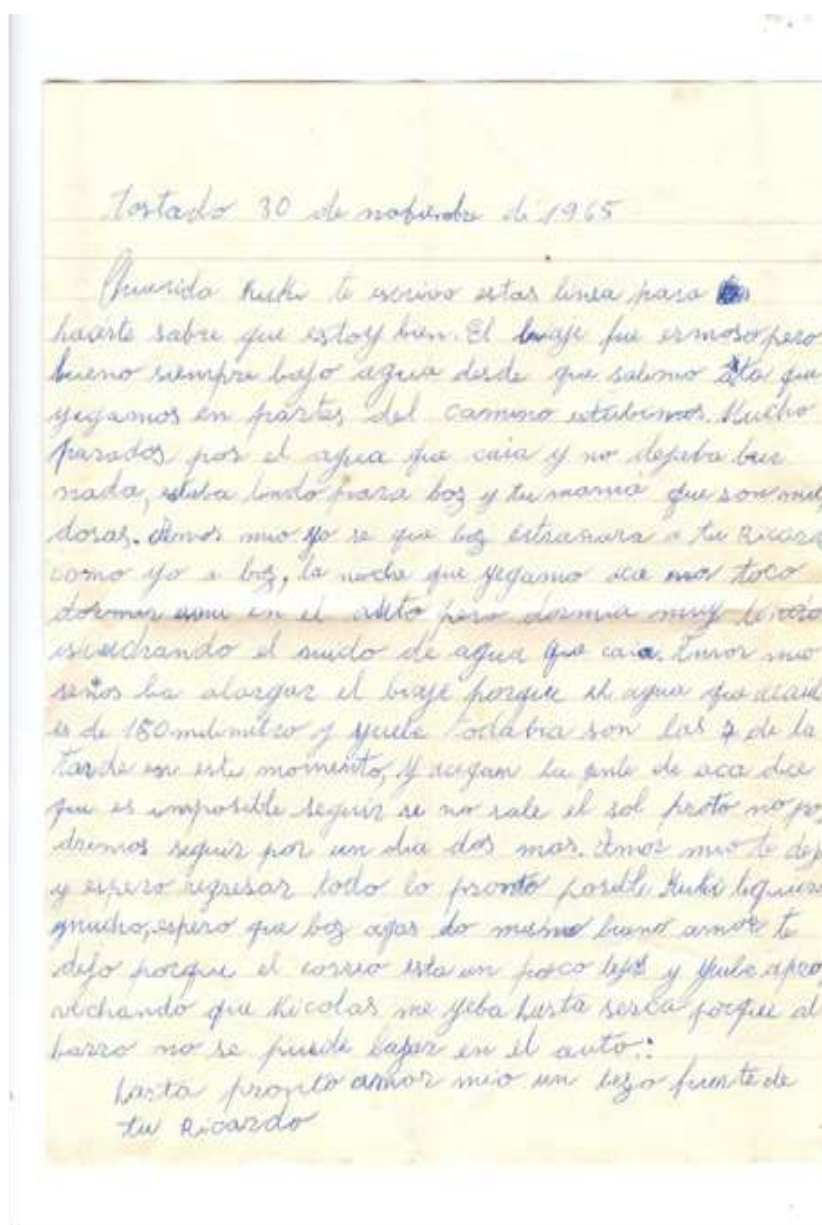 tostado 30 de nobienbre de 1965
Querida Kuki te escrivo estas linea para
hacerte sabre que estoy bien. El biaje fue ermoso pero
bueno siempre bajo agua desde que salimo asta que
yegamos en partes del camino estubimos Mucho
parados por el agua que caia y no dejaba ber
nada, estaba lindo para boz y tu mamá que son mie
dosas. Amor mio yo se que boz estrañara a tu Ricard
como yo a boz, la noche que yegamo aca nos toco
dormir en el auto pero dormia muy
escuchando el ruido de agua que caia. Amor mio
ba alargar el biaje porque el agua que
es de 180 milimetro y yuebe todabia son las 7 de la
tarde en este momento, y segun la gente de aca dice
que es imposible seguir si no sale el sol proto no po
dremos seguir por un dia dos mas. Amor mio te dejo
y espero regresar todo lo pronto posible Kuki te quiero
mucho, espero que boz agas lo mismo bueno amor te
dejo porque el correo esta un poco lejos y yuebe apro
vechando que Nicolas me yeba hasta serca porque al
barro no se puede bajar en el auto.:
hasta pronto amor mio un bezo fuerte de
tu Ricardo